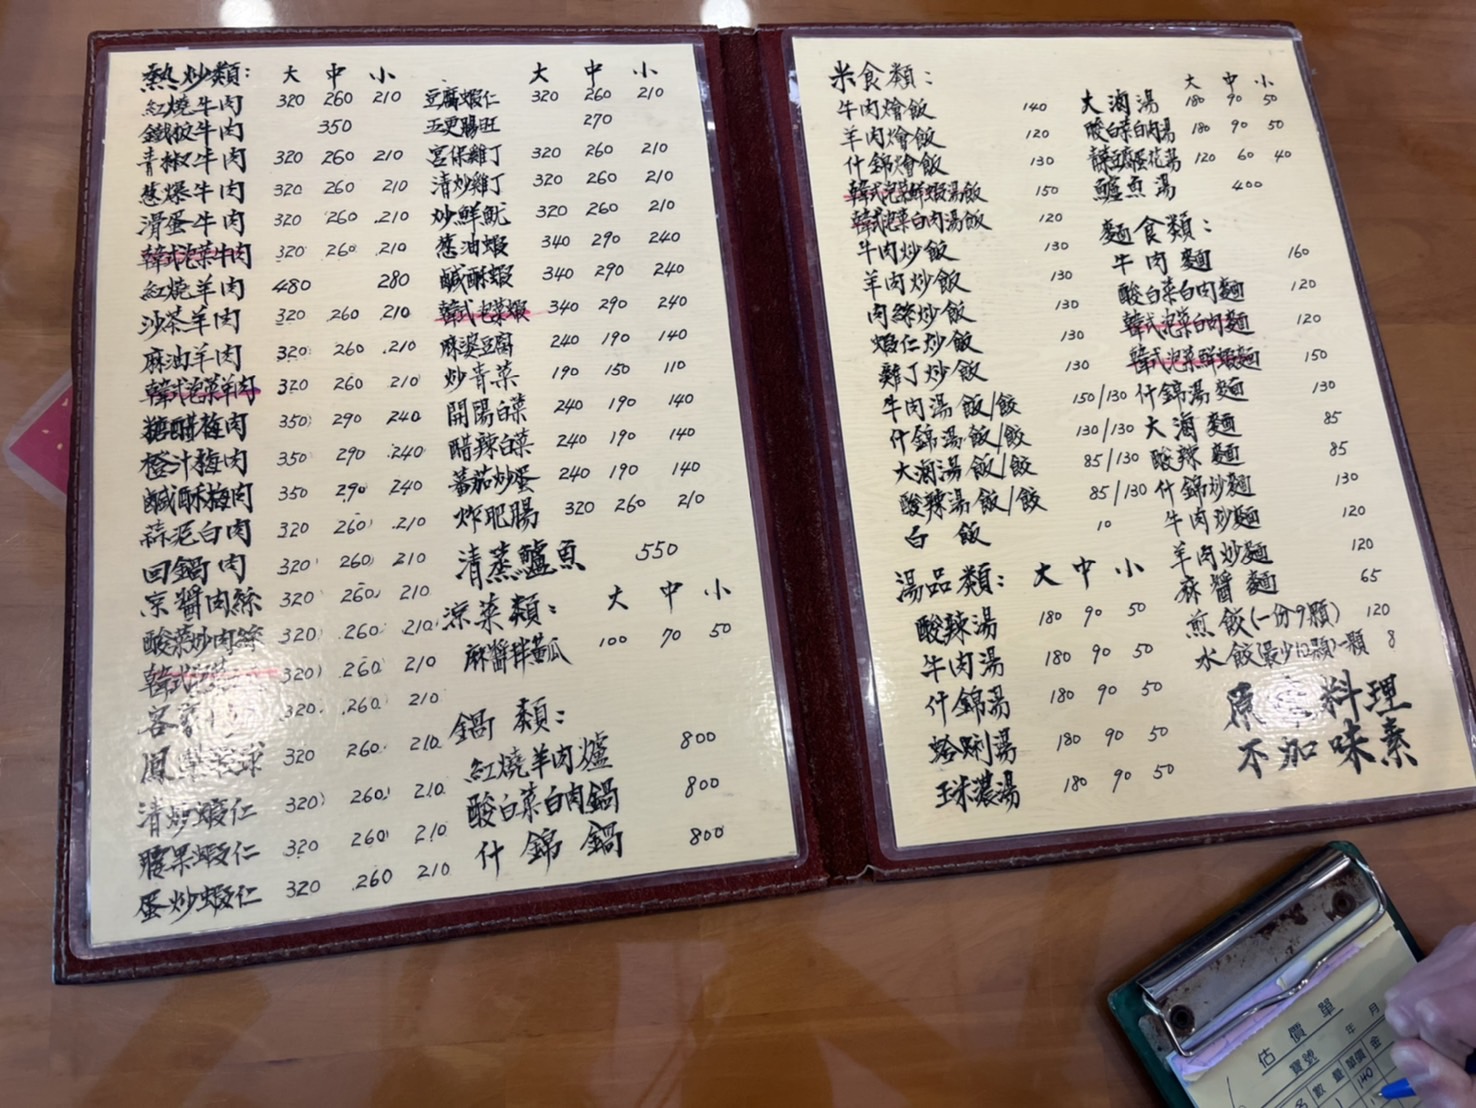 熱炒類： 大 中 小
紅燒牛肉 320 260 210
鐵板牛肉 350
青椒牛肉 320 260 210
葱爆牛肉 320 260 210
滑蛋牛肉 320 260 210
韓式泡菜牛肉 320 260 210
紅燒羊肉 480 280
沙茶羊肉 320 260 210
麻油羊肉 320 260 210
韓式泡菜羊肉 320 260 210
糖醋梅肉 350 290 240
橙汁梅肉 350 290 240
鹹酥梅肉 350 290 240
蒜泥白肉 320 260 210
回鍋肉 320 260 210
京醬肉絲 320 260 210
酸菜炒肉絲 320 260 210
韓式 320 260 210
客家 320 260 210
鳳梨 球 320 260 210
清炒蝦仁 320 260 210
腰果蝦仁 320 260 210
蛋炒蝦仁 320 260 210
大 中 小
豆腐蝦仁 320 260 210
五更腸旺 270
宮保雞丁 320 260 210
清炒雞丁 320 260 210
炒鮮魷 320 260 210
葱油蝦 340 290 240
鹹酥蝦 340 290 240
韓式泡菜蝦 340 290 240
麻婆豆腐 240 190 140
炒青菜 190 150 110
開陽白菜 240 190 140
醋辣白菜 240 190 140
蕃茄炒蛋 240 190 140
炸肥腸 320 260 210
清蒸鱸魚 550
涼菜類： 大 中 小
麻醬拌黃瓜 100 70 50
鍋類：
紅燒羊肉爐 800
酸白菜白肉鍋 800
什錦鍋 800
米食類：
牛肉燴飯 140
羊肉燴飯 120
什錦燴飯 130
韓式泡菜鮮蝦湯飯 150
韓式泡菜白肉湯飯 120
牛肉炒飯 130
羊肉炒飯 130
肉絲炒飯 130
蝦仁炒飯 130
雞丁炒飯 130
牛肉湯飯/餃 150/130
什錦湯飯/餃 130/130
大滷湯飯/餃 85/130
酸辣湯飯/餃 85/130
白飯 10
湯品類： 大 中 小
酸辣湯 180 90 50
牛肉湯 180 90 50
什錦湯 180 90 50
蛤蜊湯 180 90 50
玉米濃湯 180 90 50
大 中 小
大滷湯 180 90 50
酸白菜白肉湯 180 90 50
青菜豆腐蛋花湯 120 60 40
鱸魚湯 400
麵食類：
牛肉麵 160
酸白菜白肉麵 120
韓式泡菜白肉麵 120
韓式泡菜鮮蝦麵 150
什錦湯麵 130
大滷麵 85
酸辣麵 85
什錦炒麵 130
牛肉炒麵 120
羊肉炒麵 120
麻醬麵 65
煎餃(一份9顆) 120
水餃(最少10顆)一顆 8
原 料理
不加味素
估價單
年 月
寶號
名 數量 單價 金
140